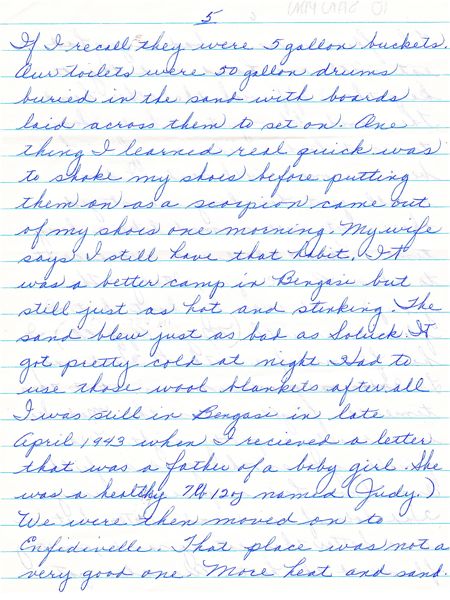 5
If I recall they were 5 gallon buckets.
Our toilets were 50 gallon drums
buried in the sand with boards
laid across them to set on. One
thing I learned real quick was
to shake my shoes before putting
them on as a scorpion came out
of my shoes one morning. My wife
says I still have that habit. It
was a better camp in Bengasi but
still just as hot and stinking. The
sand blew just as bad as Soluck. It
got pretty cold at night Had to
use those wool blankets after all
I was still in Bengasi in late
April 1943 when I recieved a letter
that was a father of a baby girl. She
was a healthy 7lb 12oz named (Judy.)
We were then moved on to
Enfidivelle. That place was not a
very good one. More heat and sand.